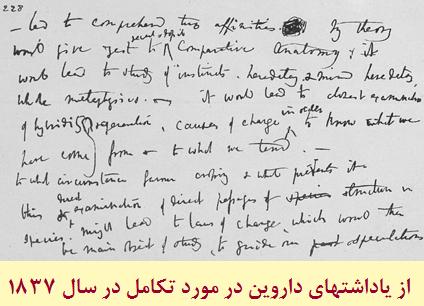 228
— led to comprehend true affinities. My theory
would give zest to recent & fossil Comparative Anatomy, & it
would lead to study of instincts, heredetary, & mind heredetary,
whole metaphysics. — it would lead to closest examination
of hybridity & generation, causes of change in order to know what we
have come from & to what we tend. —
to what circumstances favour crossing & what prevents it —
this & direct examination of direct passages of species structure in
species, might lead to laws of change, which would then
be main object of study, to guide our past speculations
از یاداشتهای داروین در مورد تکامل در سال ۱۸۳۷